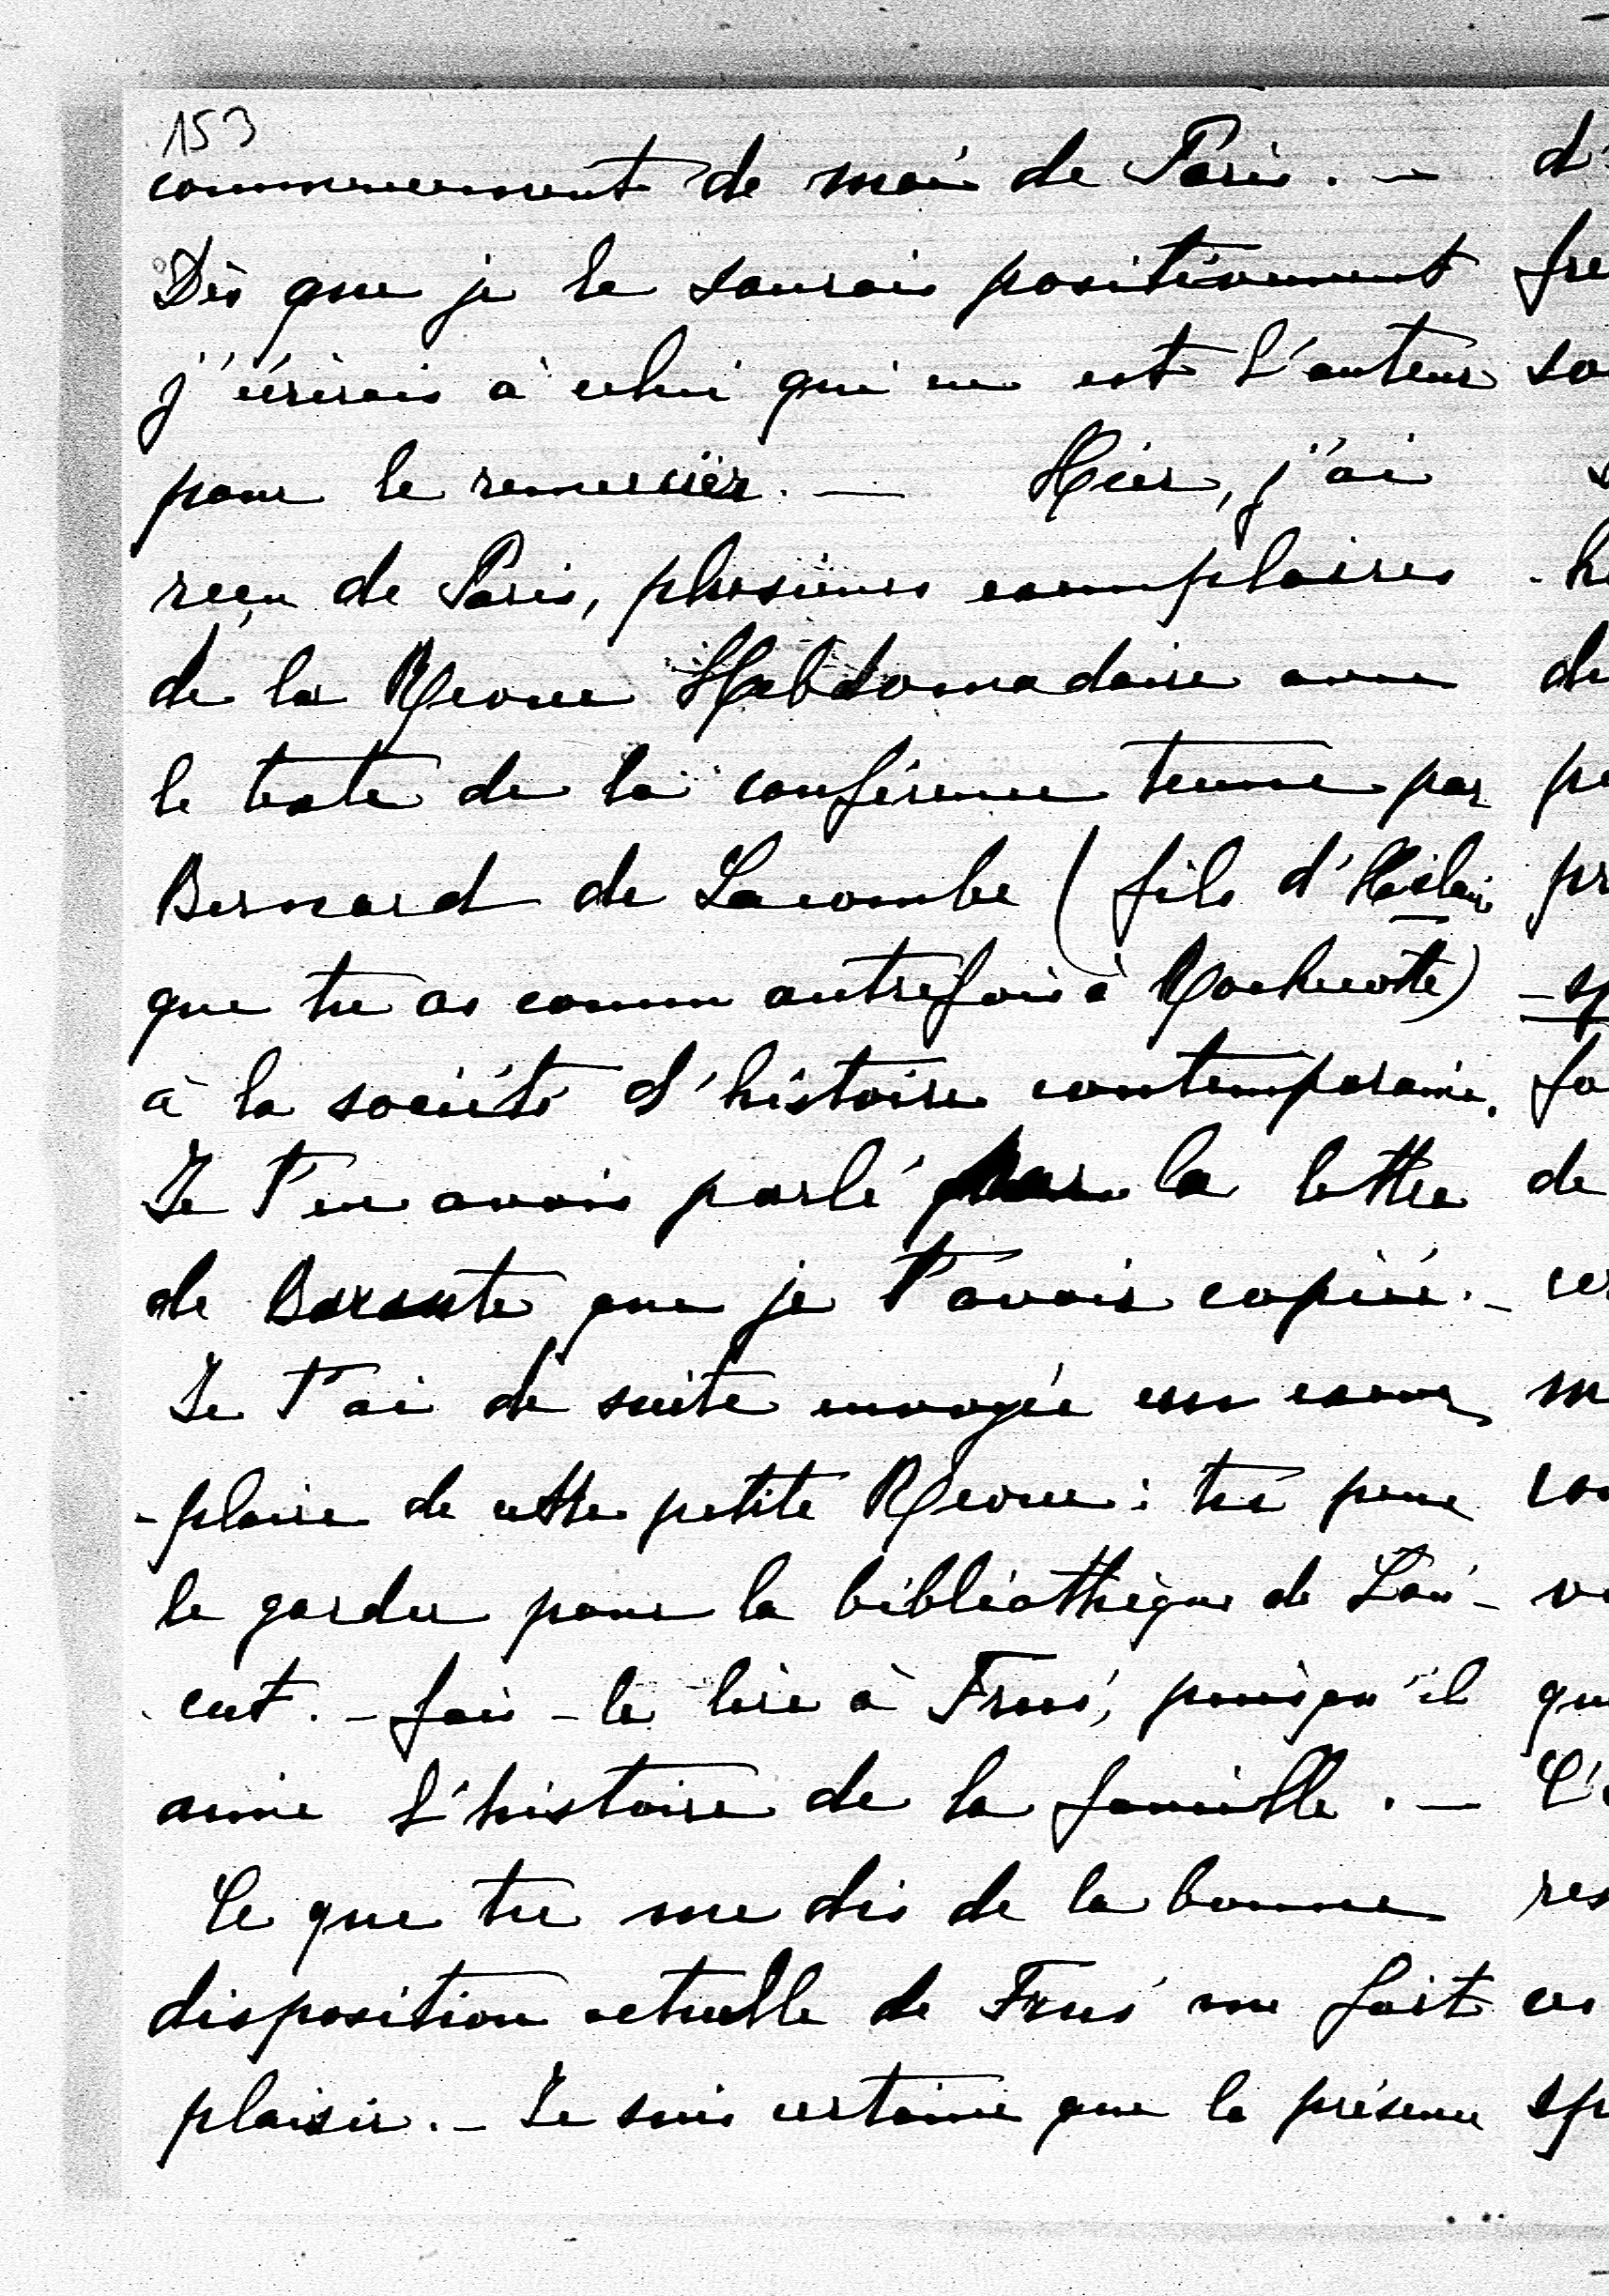 153
commencement de mai de Paris. —
Dès que je le saurais positivement
j'écrirais à celui qui en est l'auteur
pour le remercier. — Hier, j'ai
reçu de Paris, plusieurs exemplaires
de la Revue Hebdomadaire avec
le texte de la conférence tenue par
Bernard de Lacombe (fils d'Hilaire
que tu as connu autrefois à Rochecotte)
à la société d'histoire contemporaine.
Je t'en avais parlé la lettre
de Barante que je t'avais copiée. —
Je t'ai de suite envoyée un exem
-plaire de cette petite Revue : tu peux
le garder pour la bibliothèque de Lan-
cut. — fais-le lire à , puisqu'il
aime l'histoire de la famille. —
Ce que tu me dis de la bonne
disposition actuelle de me fait
plaisir. — Je suis certaine que la présence